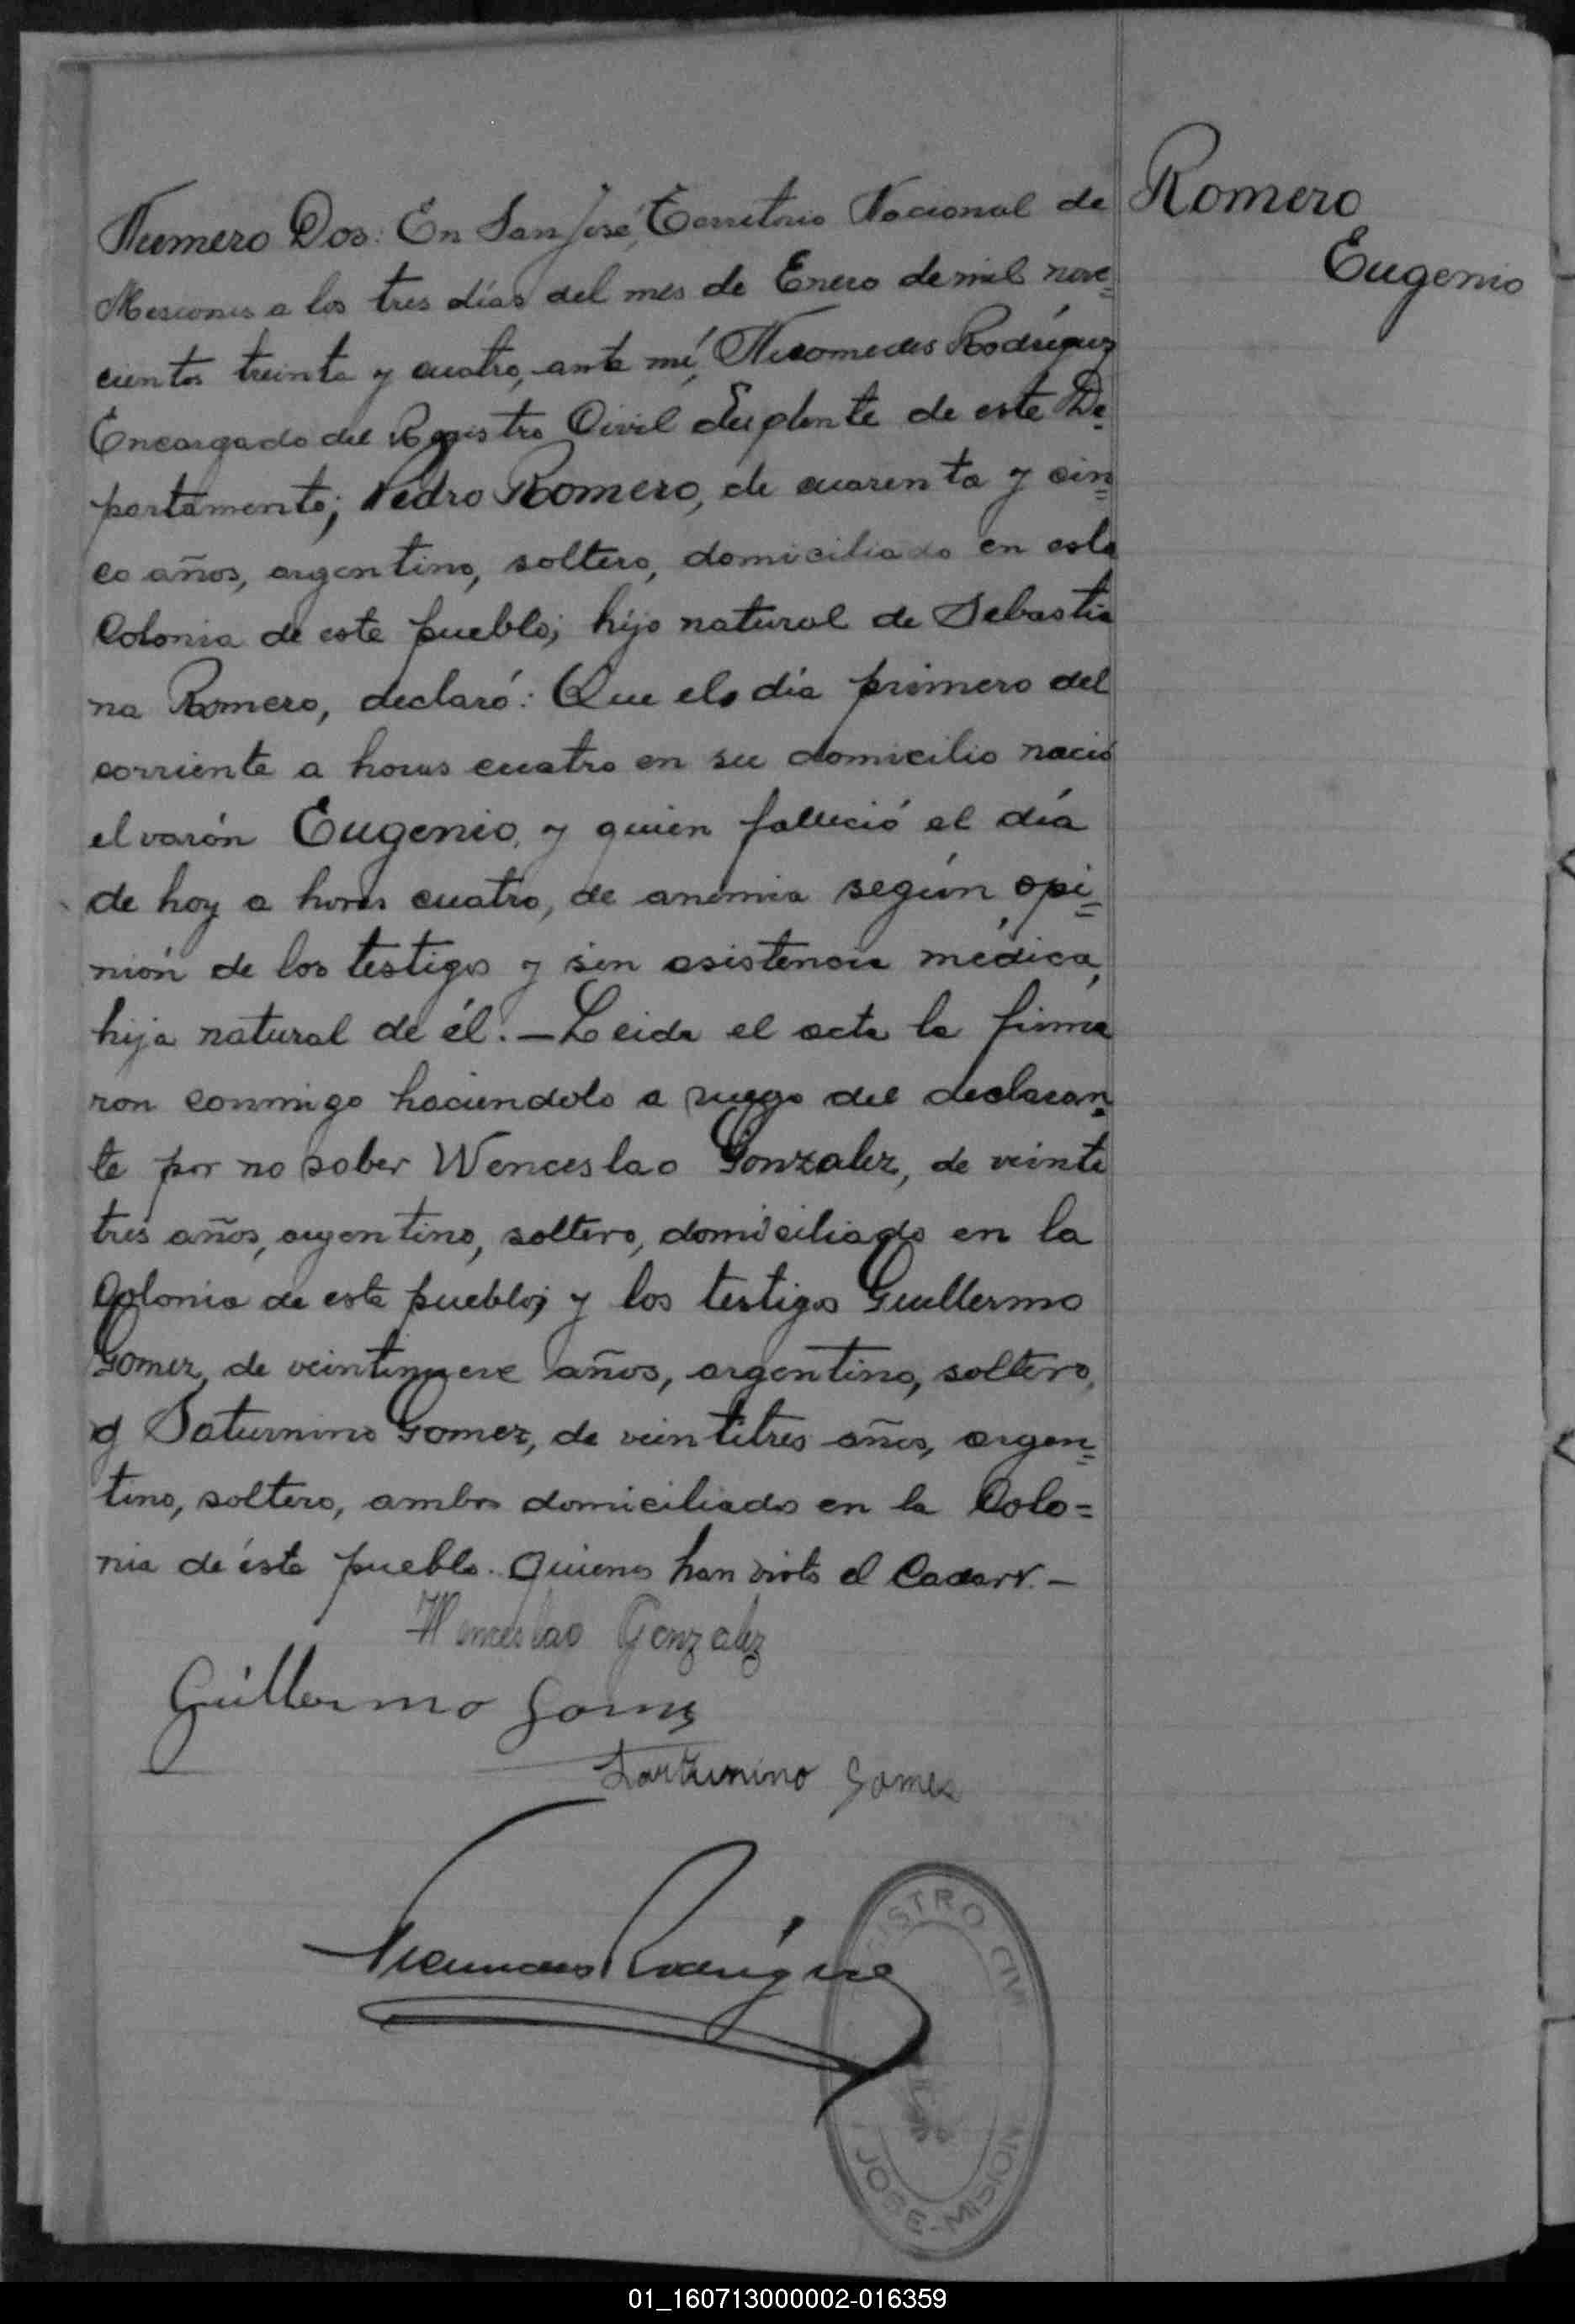 Romero
Eugenio
Numero Dos: En San José, Territorio Nacional de
Mesiones a los tres días del mes de Enero de mil nove=
cientos treinta y cuatro, ante mí, Nicomedes Rodríguez
Encargado del Registro Civil Suplente de este De=
partamento; Pedro Romero, de cuarenta y cin=
co años, argentino, soltero, domiciliado en esta
Colonia de este pueblo; hijo natural de Sebastia
na Romero, declaró: Que el día primero del
corriente a horas cuatro en su domicilio nació
el varón Eugenio, y quien falleció el día
de hoy a horas cuatro, de anemia según opi=
nión de los testigos y sin asistencia médica,
hija natural de él. — Leida el acta la firma
ron conmigo haciendolo a ruego del declaran=
te por no saber Wenceslao Gonzalez, de veinte
tres años, argentino, soltero, domiciliado en la
Colonia de este pueblo; y los testigos Guillermo
Gomez, de veintinueve años, argentino, soltero,
y Saturnino Gomez, de veintitres años, argen=
tino, soltero, ambos domiciliados en la Colo=
nia de éste pueblo. Quienes han visto el Cadavr. —
Wenceslao Gonzalez
Guillermo Gomez
Sarturnino Gomes
Nicomedes Rodríguez
ISTRO CIVI
JOSE-MISION
01_160713000002-016359